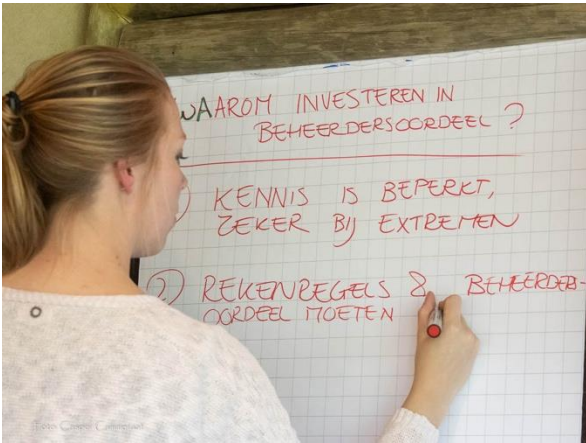 WAAROM INVESTEREN IN
BEHEERDERSOORDEEL?
) KENNIS IS BEPERKT,
ZEKER BIJ EXTREMEN
2) REKENREGELS & BEHEERDERS-
OORDEEL MOETEN